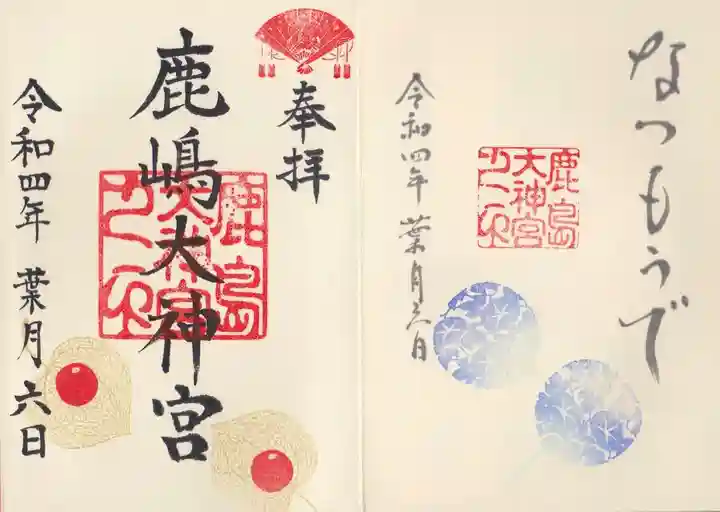 なつもうで
鹿島
大神宮
令和四年 葉月六日
奉拝
鹿嶋大神宮
鹿島
大神宮
令和四年 葉月六日